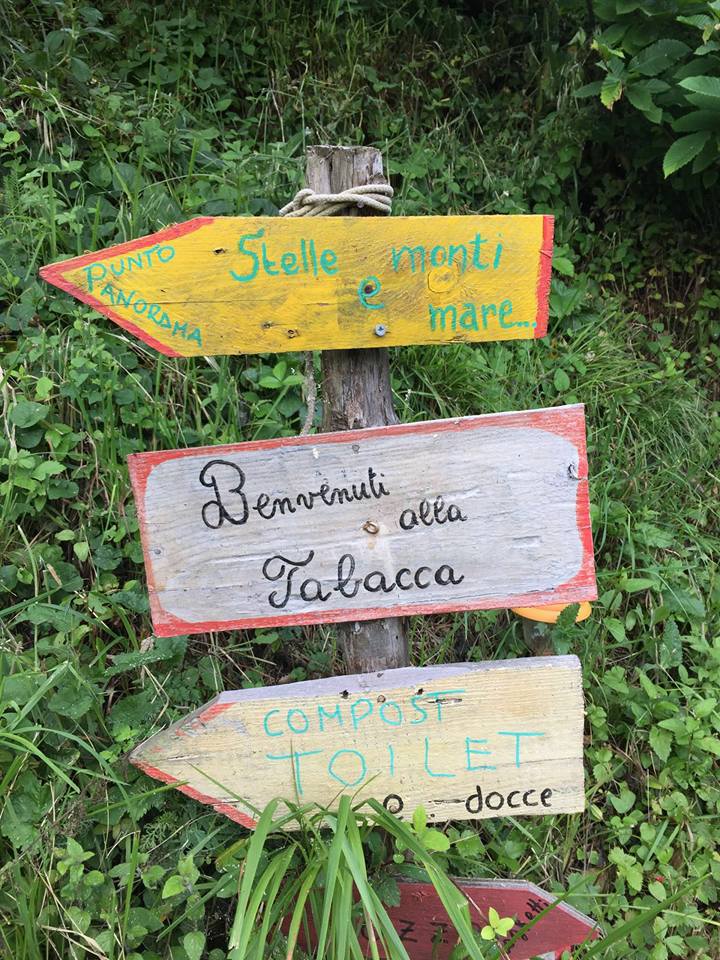 PUNTO
PANORAMA
Stelle monti
e
mare...
Benvenuti
alla
Tabacca
COMPOST
TOILET
e docce